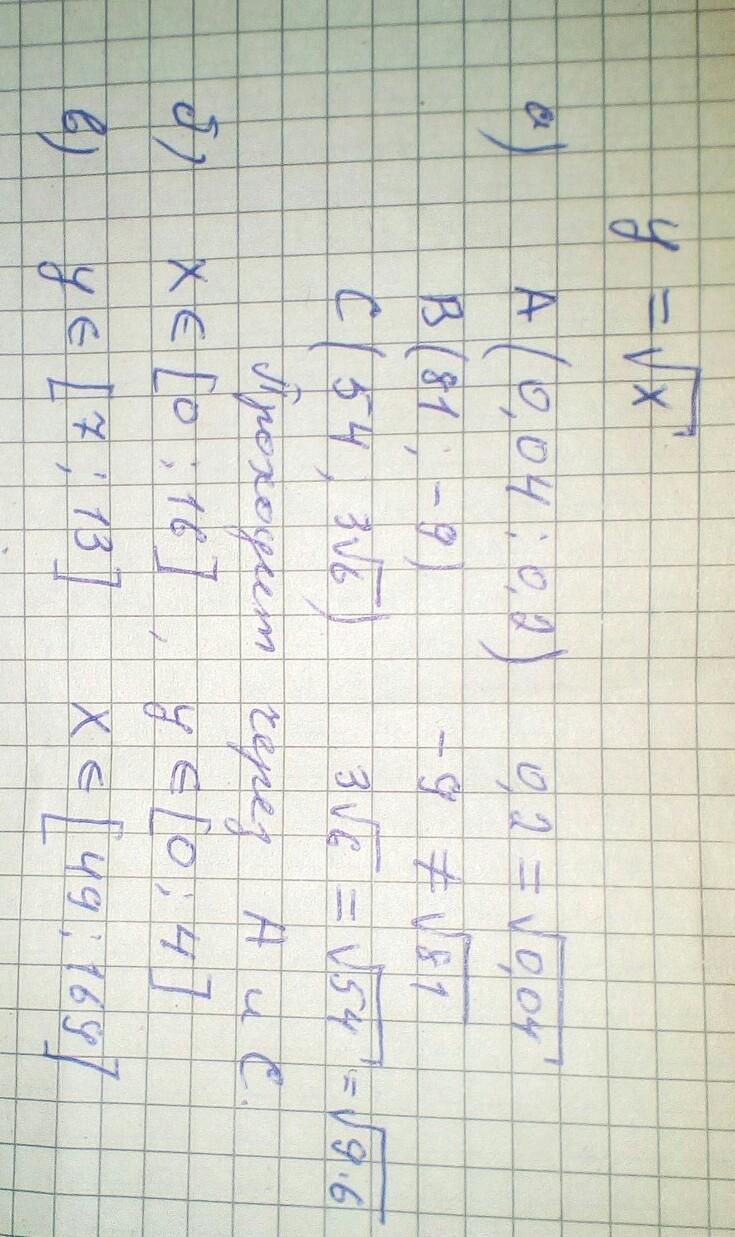 y = √x
а) A (0,04 ; 0,2) 0,2 = √0,04
B (81 ; -9) -9 ≠ √81
C (54 ; 3√6) 3√6 = √54 = √9·6
Проходит через A и C.
б) x ∈ [0 ; 16] , y ∈ [0 ; 4]
в) y ∈ [7 ; 13] x ∈ [49 ; 169]